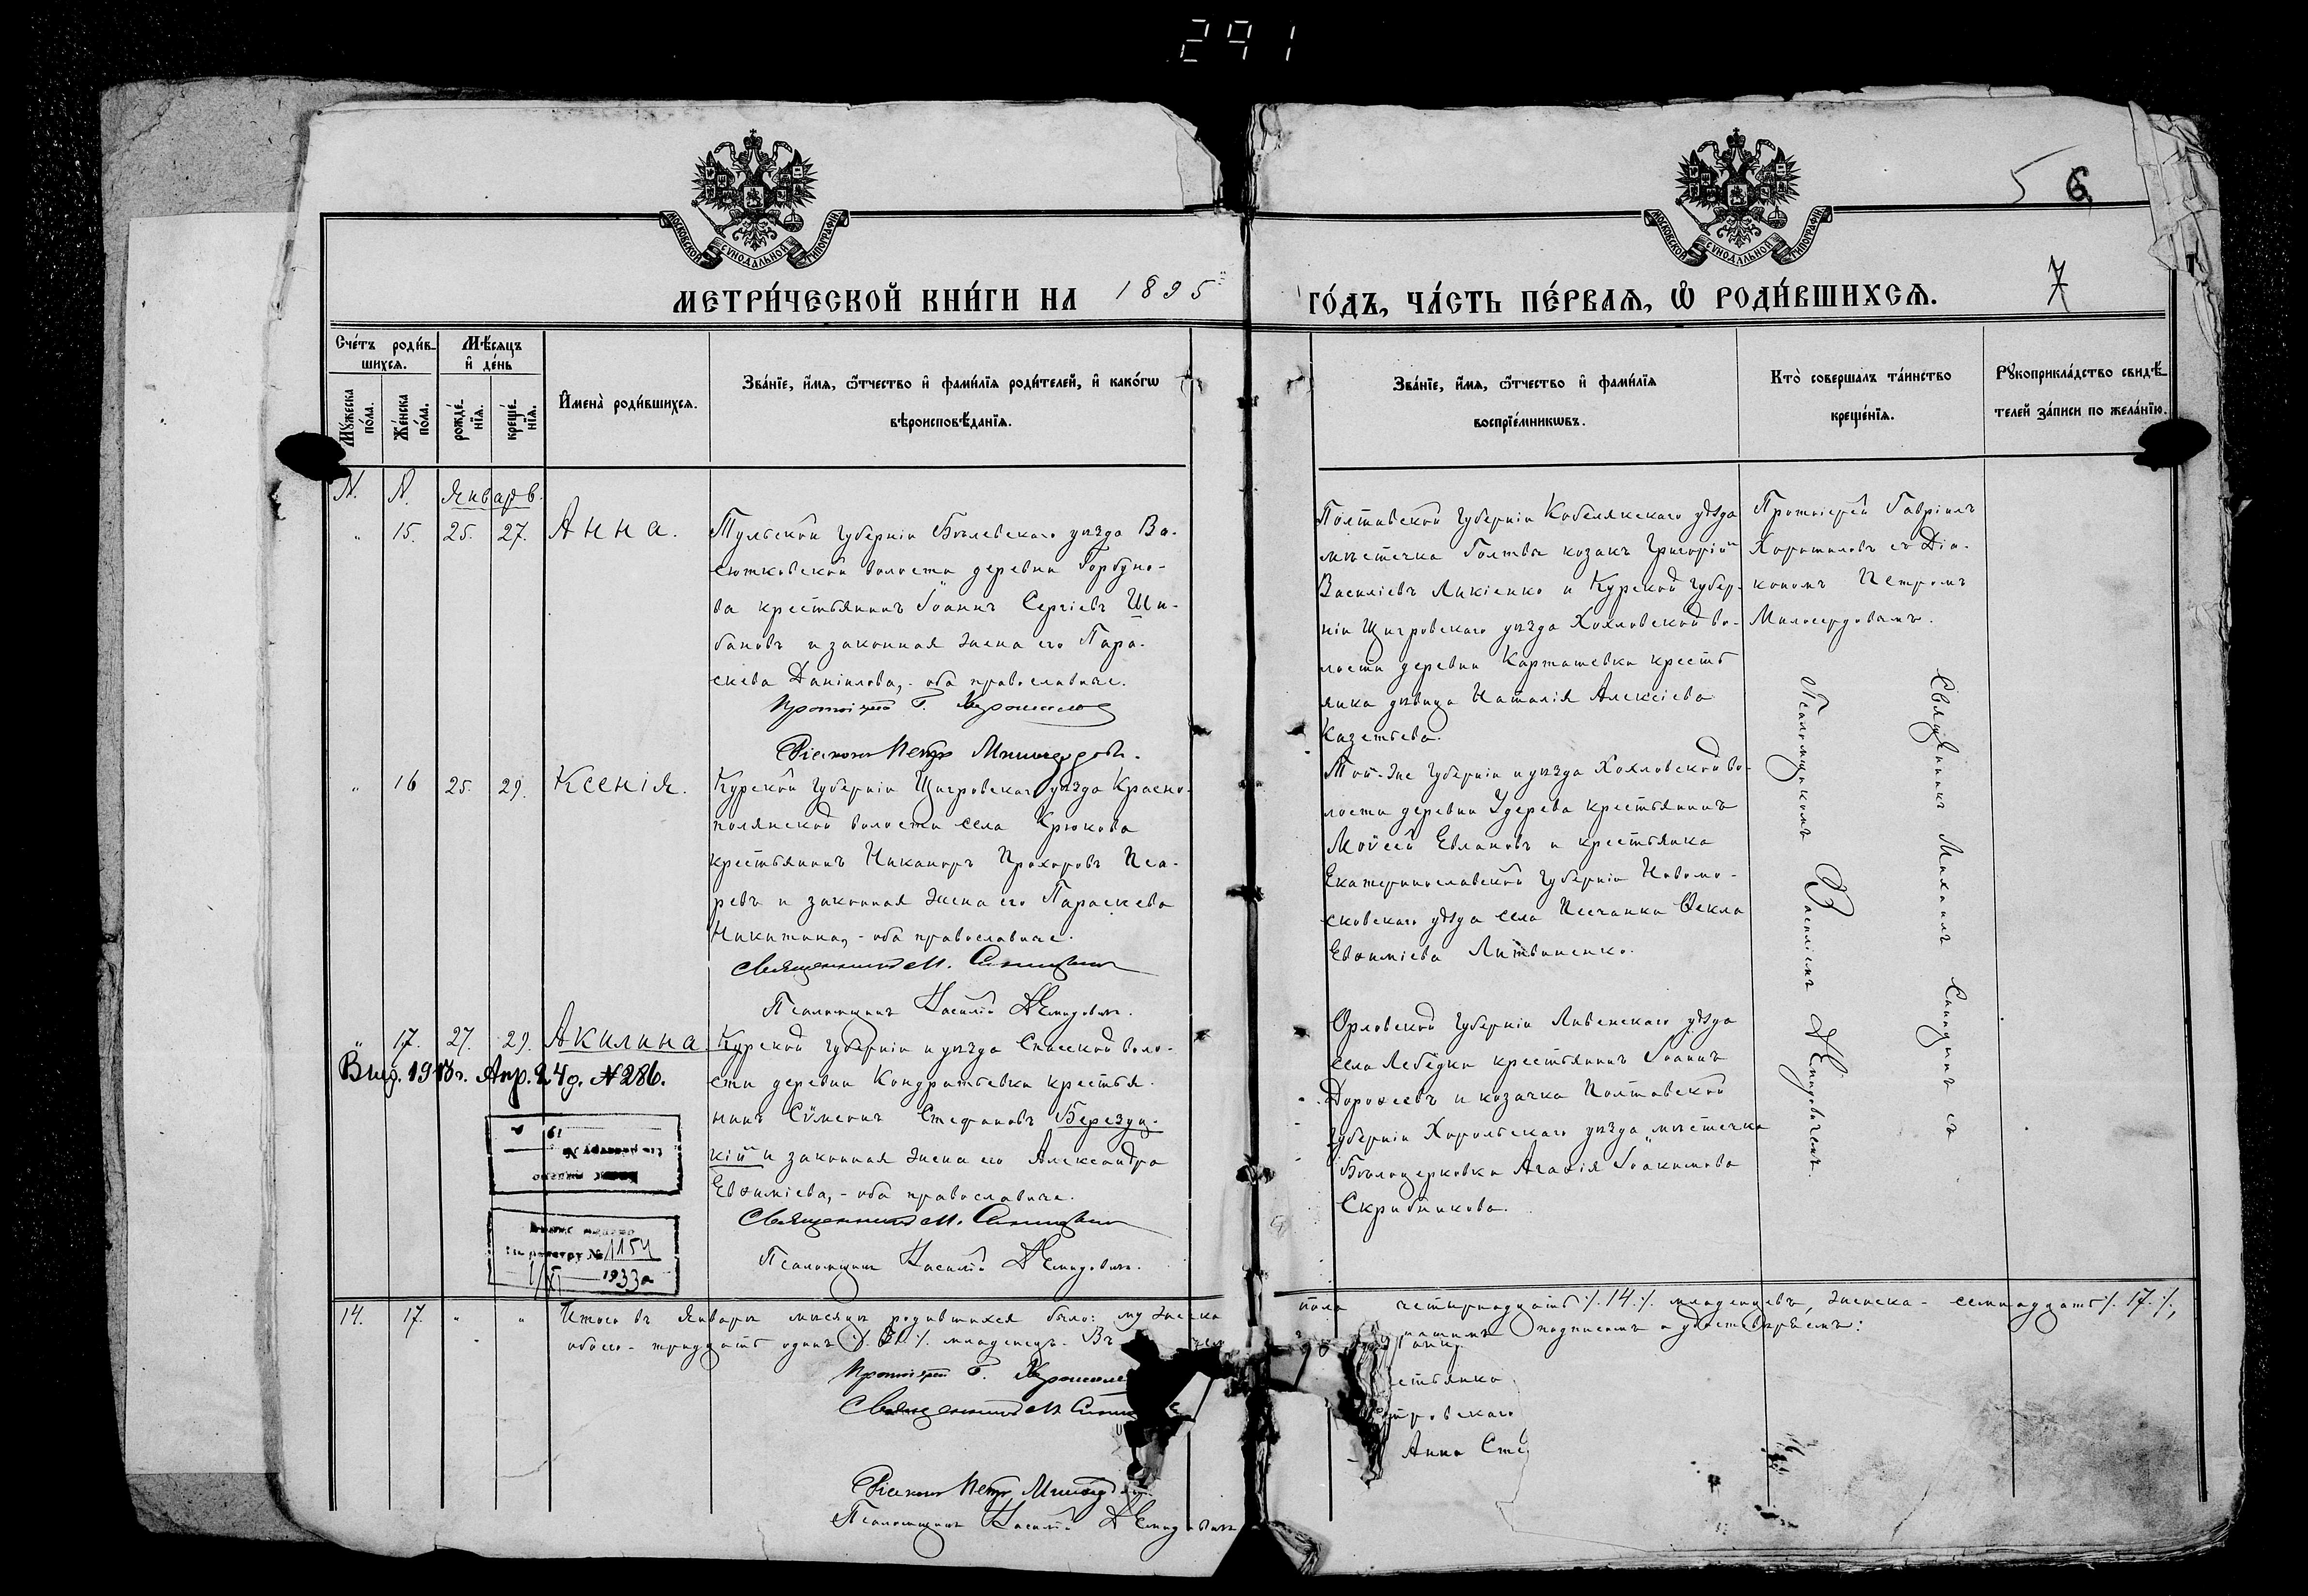 291
МОСКОВСКОЙ СѴНОДАЛЬНОЙ ТИПОГРАФІИ
МОСКОВСКОЙ СѴНОДАЛЬНОЙ ТИПОГРАФІИ
5 6
7
МЕТРИ́ЧЕСКОЙ КНИ́ГИ НА 1895 ГО́ДЪ, ЧА́СТЬ ПЕ́РВАЯ, Ѡ РОДИ́ВШИХСЯ.
Сче́тъ роди́в-
шихся.
Мѣсяцъ
и де́нь
Мужеска по́ла.
Же́нска по́ла.
рожде́-
нїя.
креще́-
нїя.
Имена̀ роди́вшихся.
Зва́нїе, и́мя, ѻтчество и фами́лїя роди́телей, и како́гѡ
вѣроисповѣданїя.
Зва́нїе, и́мя, ѻтчество и фами́лїя
воспрїе́мникѡвъ.
Кто̀ совершалъ та́инство
креще́нїя.
Рукоприкла́дство свидѣ-
телей за́писи по жела́нїю.
N. N. Январь.
" 15. 25. 27. Анна.
Тульской губерніи Бѣлевскаго уѣзда Ва-
сютковской волости деревни Горбуно-
ва крестьянинъ Іоаннъ Сергіевъ Ши-
бановъ и законная жена его Пара-
скева Даніилова, - оба православные.
Протоіерей Г. Хорошиловъ
Діаконъ Петръ Милосердовъ.
Полтавской губерніи Кобелякскаго уѣзда
мѣстечка Голтвы козакъ Григорій
Василіевъ Ликіенко и Курской губер-
ніи Щигровскаго уѣзда Хохловской во-
лости деревни Карташевки кресть
янка дѣвица Наталія Алексіева
Казетьева.
Протоіерей Гавріилъ
Хорошиловъ съ Діа-
кономъ Петромъ
Милосердовымъ.
" 16 25. 29. Ксенія.
Курской губерніи Щигровскаго уѣзда Красно-
полянской волости села Крюкова
крестьянинъ Никаноръ Прохоровъ Пса-
ревъ и законная жена его Параскева
Никитина, - оба православные.
Священникъ М. Синицынъ
Псаломщикъ Василій Демидовичъ.
Той-же губерніи и уѣзда Хохловской во-
лости деревни Удерева крестьянинъ
Моѵсей Евлановъ и крестьянка
Екатеринославской губерніи Новомо-
сковскаго уѣзда села Песчанки Ѳекла
Евѳиміева Литвиненко.
Священникъ Михаилъ Синицынъ съ
Псаломщикомъ Василіемъ Демидовичемъ.
" 17. 27. 29. Акилина
Курской губерніи и уѣзда Спасской воло-
сти деревни Кондратьевки крестья-
нинъ Сѵмеонъ Стефановъ Березуц-
кій и законная жена его Александра
Евѳиміева, - оба православные.
Священникъ М. Синицынъ
Псаломщикъ Василій Демидовичъ.
Орловской губерніи Ливенскаго уѣзда
села Лебёдки крестьянинъ Іоаннъ
Дороѳеевъ и козачка Полтавской
губерніи Хорольскаго уѣзда мѣстечка
Бѣлоцерковки Агаѳія Іоакимова
Скрибникова.
Апр. 24 д. №286.
по реестру №1154
1/XI 1933 г.
14. 17. " " Итого въ Январѣ мѣсяцѣ родившихся было: мужеска пола четырнадцать ⁒ 14 ⁒ младенцевъ, женска - семнадцать ⁒ 17 ⁒,
обоего - тридцать одинъ ⁒ 31 ⁒ младенецъ. Въ нашимъ подписомъ и удостовѣряемъ:
Протоіерей Г.
Священникъ М.
Діаконъ Петръ
Псаломщикъ Василій Демидовичъ
Анна